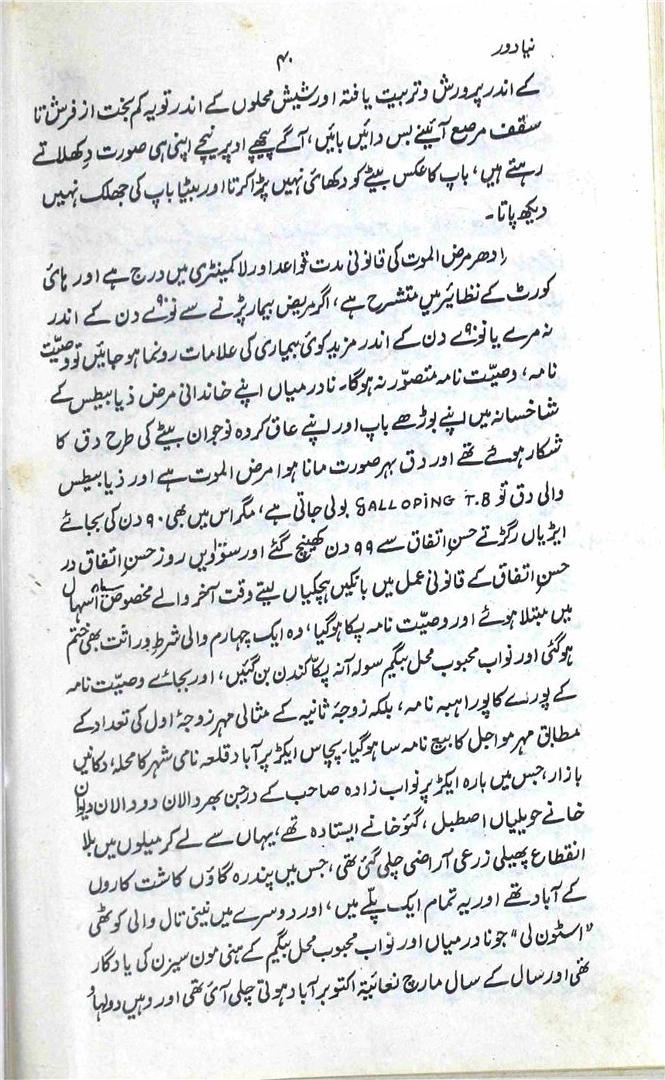 نیا دور
۴۰
کے اندر پرورش و تربیت یافتہ اور شیش محلوں کے اندر تو یہ کم بخت از فرش تا
سقف مرصع آئینے بس دائیں بائیں، آگے پیچھے اوپر نیچے اپنی ہی صورت دکھلاتے
رہتے ہیں، باپ کا عکس بیٹے کو دکھائی نہیں پڑا کرتا اور بیٹا باپ کی جھلک نہیں
دیکھ پاتا۔
ادھر مرض الموت کی قانونی مدت قواعد اور لا کمینٹری میں درج ہے اور ہائی
کورٹ کے نظائر میں متشرح ہے، اگر مریض بیمار پڑنے سے نوّے ۹۰ دن کے اندر
نہ مرے یا نوّے ۹۰ دن کے اندر مزید کوئی بیماری کی علامات رونما ہو جائیں تو وصیّت
نامہ، وصیّت نامہ متصوّر نہ ہوگا۔ نادر میاں اپنے خاندانی مرض ذیابیطس کے
شاخسانہ میں اپنے بوڑھے باپ اور اپنے عاق کردہ نوجوان بیٹے کی طرح دق کا
شکار ہوئے تھے اور دق بہر صورت مانا ہوا مرض الموت ہے اور ذیابیطس
والی دق تو GALLOPING T.B بولی جاتی ہے، مگر اس میں بھی ۹۰ دن کی بجائے
ایڑیاں رگڑتے حسنِ اتفاق سے ۹۹ دن کھینچ گئے اور سنوّاویں روز حسنِ اتفاق در
حسنِ اتفاق کے قانونی عمل میں بانکیں ہچکیاں لیتے وقت آخر والے مخصوص سیاہ اسہال
میں مبتلا ہوئے اور وصیّت نامہ پکا ہوگیا، وہ ایک چہارم والی شرطِ وراثت بھی ختم
ہوگئی اور نواب محبوب محل بیگم سولہ آنہ پکّا کندن بن گئیں، اور بجائے وصیّت نامہ
کے پورے کا پورا ہبہ نامہ، بلکہ زوجۂ ثانیہ کے مثالی مہر زوجۂ اول کی تعداد کے
مطابق مہر مواجل کا بیع نامہ سا ہوگیا۔ پچاس ایکڑ پر آباد قلعہ نامی شہر کا محلہ، دکانیں
بازار، جس میں بارہ ایکڑ پر نواب زادہ صاحب کے درجن بھر دالان دو دالان دیوان
خانے حویلیاں اصطبل، گئوخانے ایستادہ تھے، یہاں سے لے کر میلوں میں بلا
انقطاع پھیلی زرعی آراضی چلی گئی تھی، جس میں پندرہ گاؤں کاشت کاروں
کے آباد تھے اور یہ تمام ایک پلّے میں، اور دوسرے میں نینی تال والی کوٹھی
”اسٹون لی“ جو نادر میاں اور نواب محبوب محل بیگم کے ہنی مون سیزن کی یادگار
تھی اور سال کے سال مارچ لغائیۃ اکتوبر آباد ہوتی چلی آئی تھی اور وہیں دولہا و